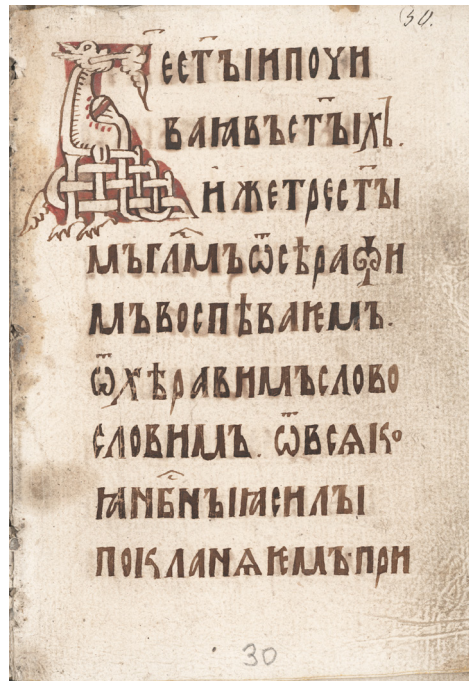 50.
Б҃ест҃ъıипоѵи
ваꙗвъст҃ъıхъ.
ижетрест҃ъı
мъгл҃мъѿсѣрафи
мъвоспѣваѥмъ.
ѿхѣравимъслово
словимъ. ѿвсѧко
ꙗнб҃нъıꙗсилъı
покланѧѥмъ·при
30